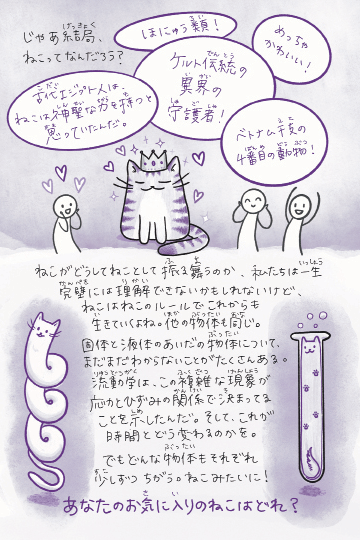 じゃあ結局、
ねこってなんだろう？
ほにゅう類！
めっちゃ
かわいい！
ケルト伝統の
異界の
守護者！
古代エジプト人は、
ねこは神聖な力を持つと
思っていたんだ。
ベトナム干支の
4番目の動物！
ねこがどうしてねことして振る舞うのか、私たちは一生
完璧には理解できないかもしれないけど、
ねこはねこのルールでこれからも
生きていくよね。他の物体も同じ。
固体と液体のあいだの物体について、
まだまだわからないことがたくさんある。
流動学は、この複雑な現象が
応力とひずみの関係で決まってる
ことを示したんだ。そして、これが
時間とどう変わるのかを。
でもどんな物体もそれぞれ
少しずつちがう。ねこみたいに！
あなたのお気に入りのねこはどれ？